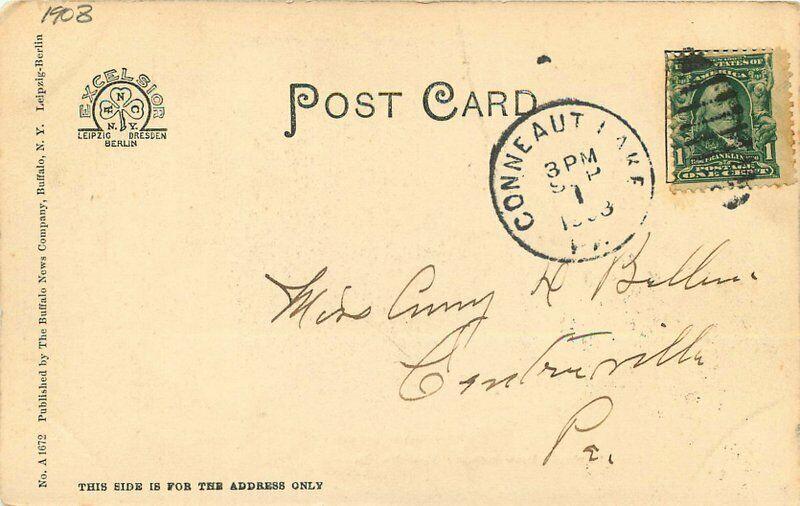 1908
No. A 1672 Published by The Buffalo News Company, Buffalo, N. Y. Leipzig-Berlin
EXCELSIOR
A N C
N. Y.
LEIPZIG DRESDEN
BERLIN
POST CARD
CONNEAUT LAKE
3 PM
SEP
1
PA.
STATES OF
AMERICA
1 FRANKLIN 1
POSTAGE
ONE CENT
Miss
Centreville
Pa.
THIS SIDE IS FOR THE ADDRESS ONLY